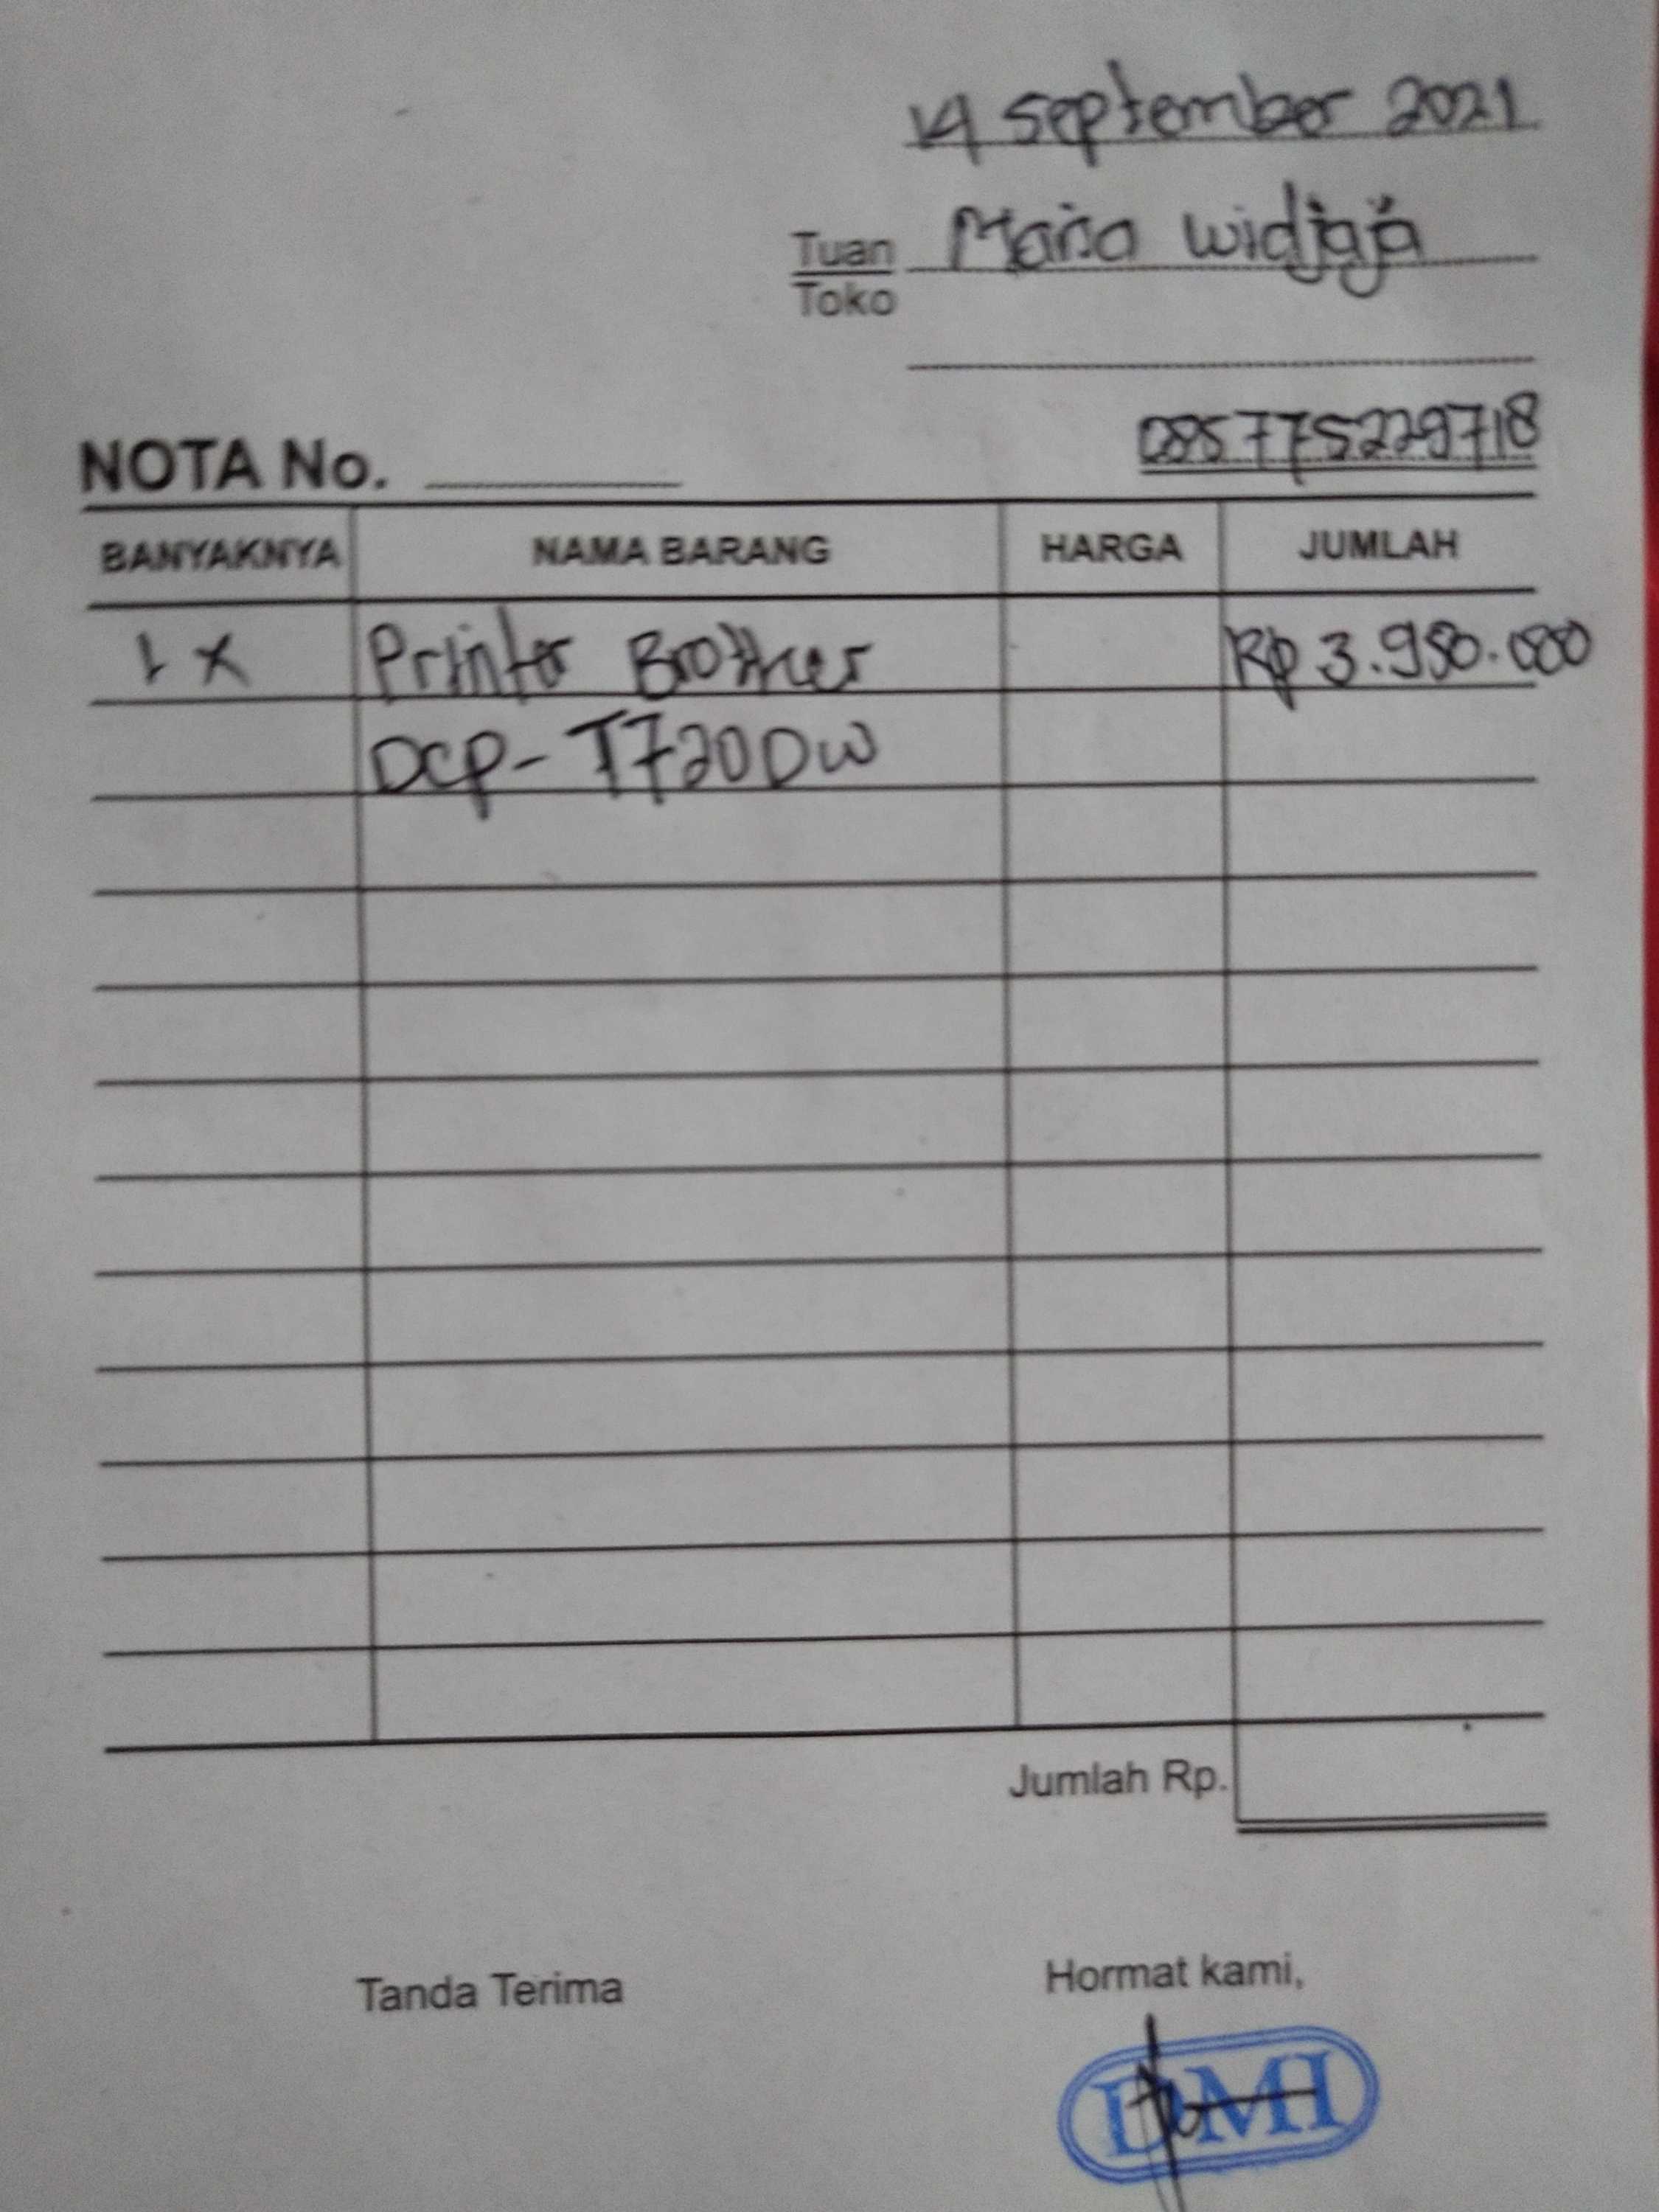 14 September 2021
Tuan Maria Widjaja
Toko
NOTA No.
085775229718
BANYAKNYA NAMA BARANG HARGA JUMLAH
1 x Printer Brother Rp 3.950.000
DCP-T720DW
Jumlah Rp.
Tanda Terima Hormat kami,
DMI